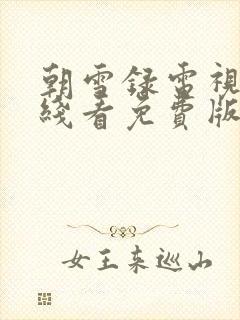 朝雪録電視
綫看免費版
女王来巡山